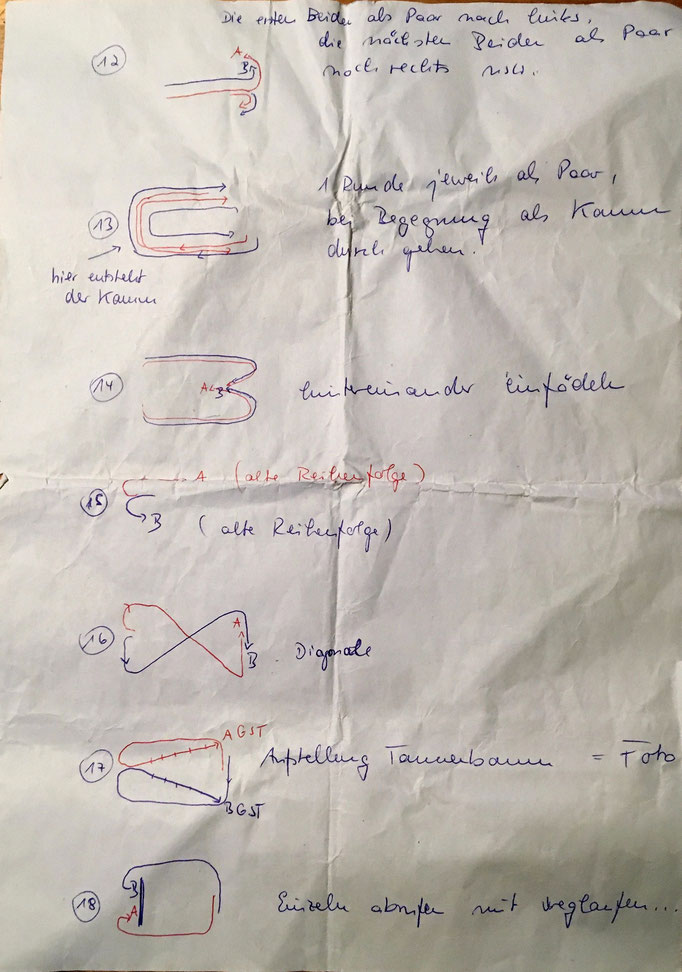 Die ersten Beiden als Paar nach links,
die nächsten Beiden als Paar
nach rechts usw.
12
A
B
1 Runde jeweils als Paar,
bei Begegnung als Kamm
durch gehen.
13
hier entsteht
der Kamm
14
A
B
hintereinander einfädeln
15
A (alte Reihenfolge)
B (alte Reihenfolge)
16
A
B
Diagonale
17
A GST
B GST
Aufstellung Tannenbaum = Foto
18
B
A
Einzeln abrufen mit weglaufen...